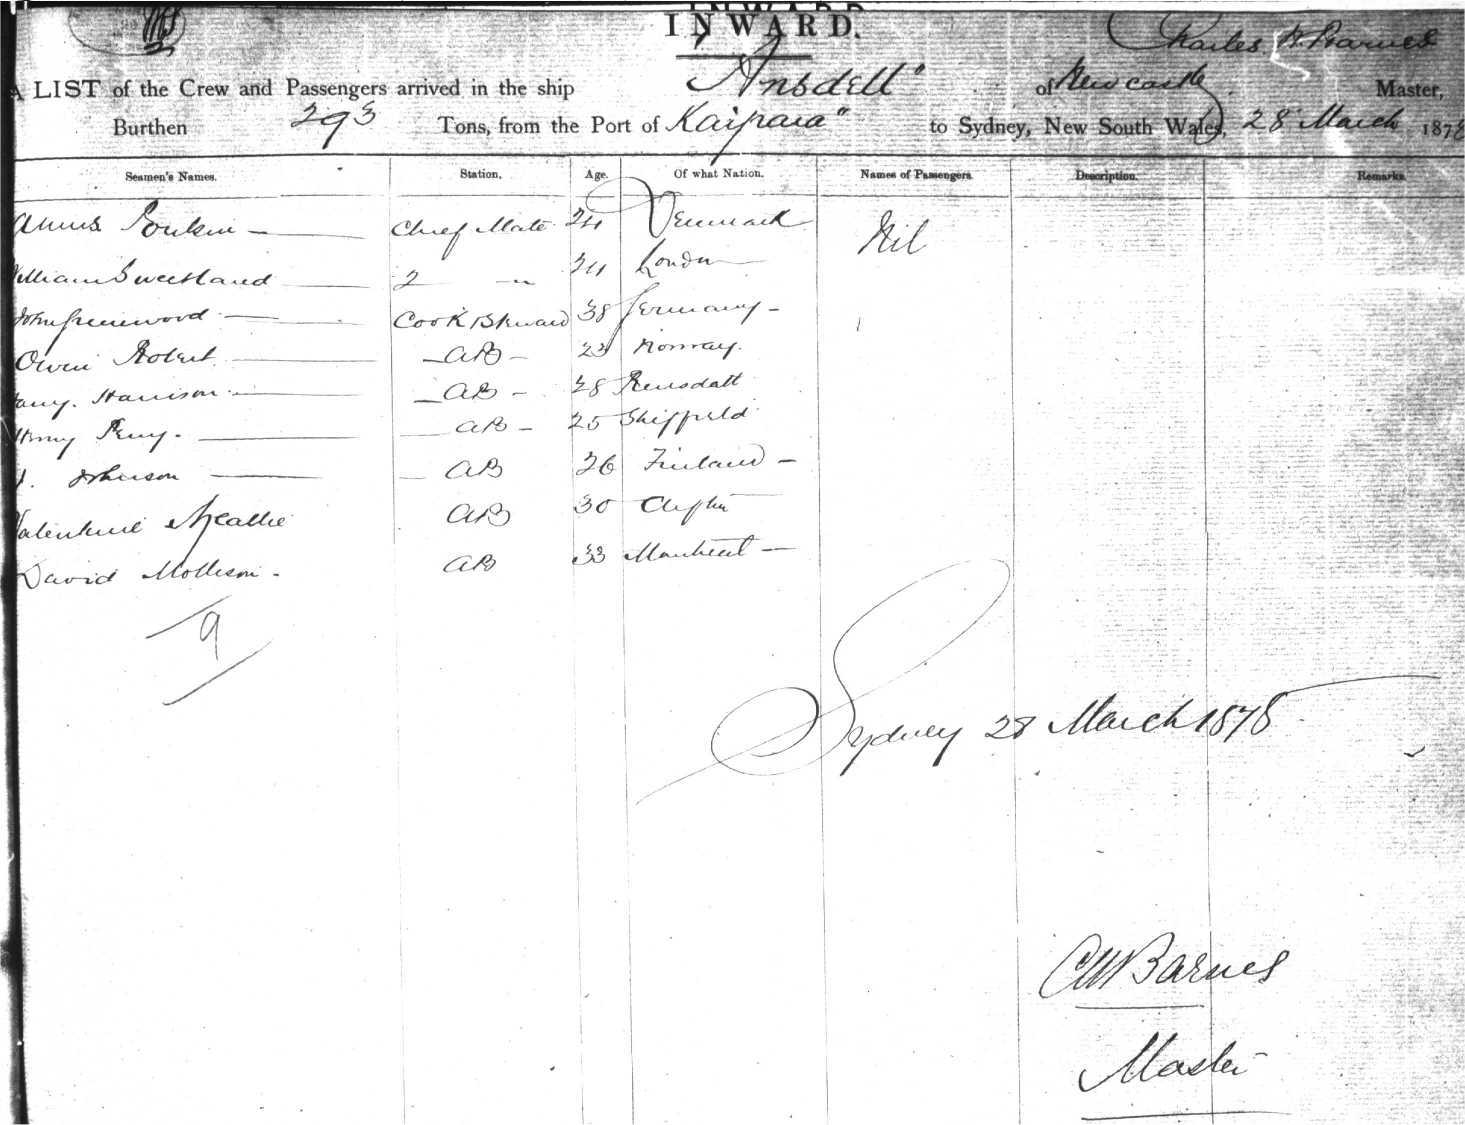 INWARD.
Charles W Barnes
A LIST of the Crew and Passengers arrived in the ship "Ansdell" of Newcastle Master,
Burthen 293 Tons, from the Port of Kaipara" to Sydney, New South Wales, 28 March 1878
Seamen's Names. Station. Age. Of what Nation. Names of Passengers. Description. Remarks.
Chief Mate 24 Denmark Nil
William Sweetland 2 — " 24 London
John Greenwood Cook & Steward 38 Germany
Owen Robert AB 23 Norway.
Harrison AB 28
Henry Perry. AB 25 Sheffield
Johnson AB 26 Finland
Valentine AB 30 Clifton
David Mollison AB 33 Montreal
9
Sydney 28 March 1878
CW Barnes
Master